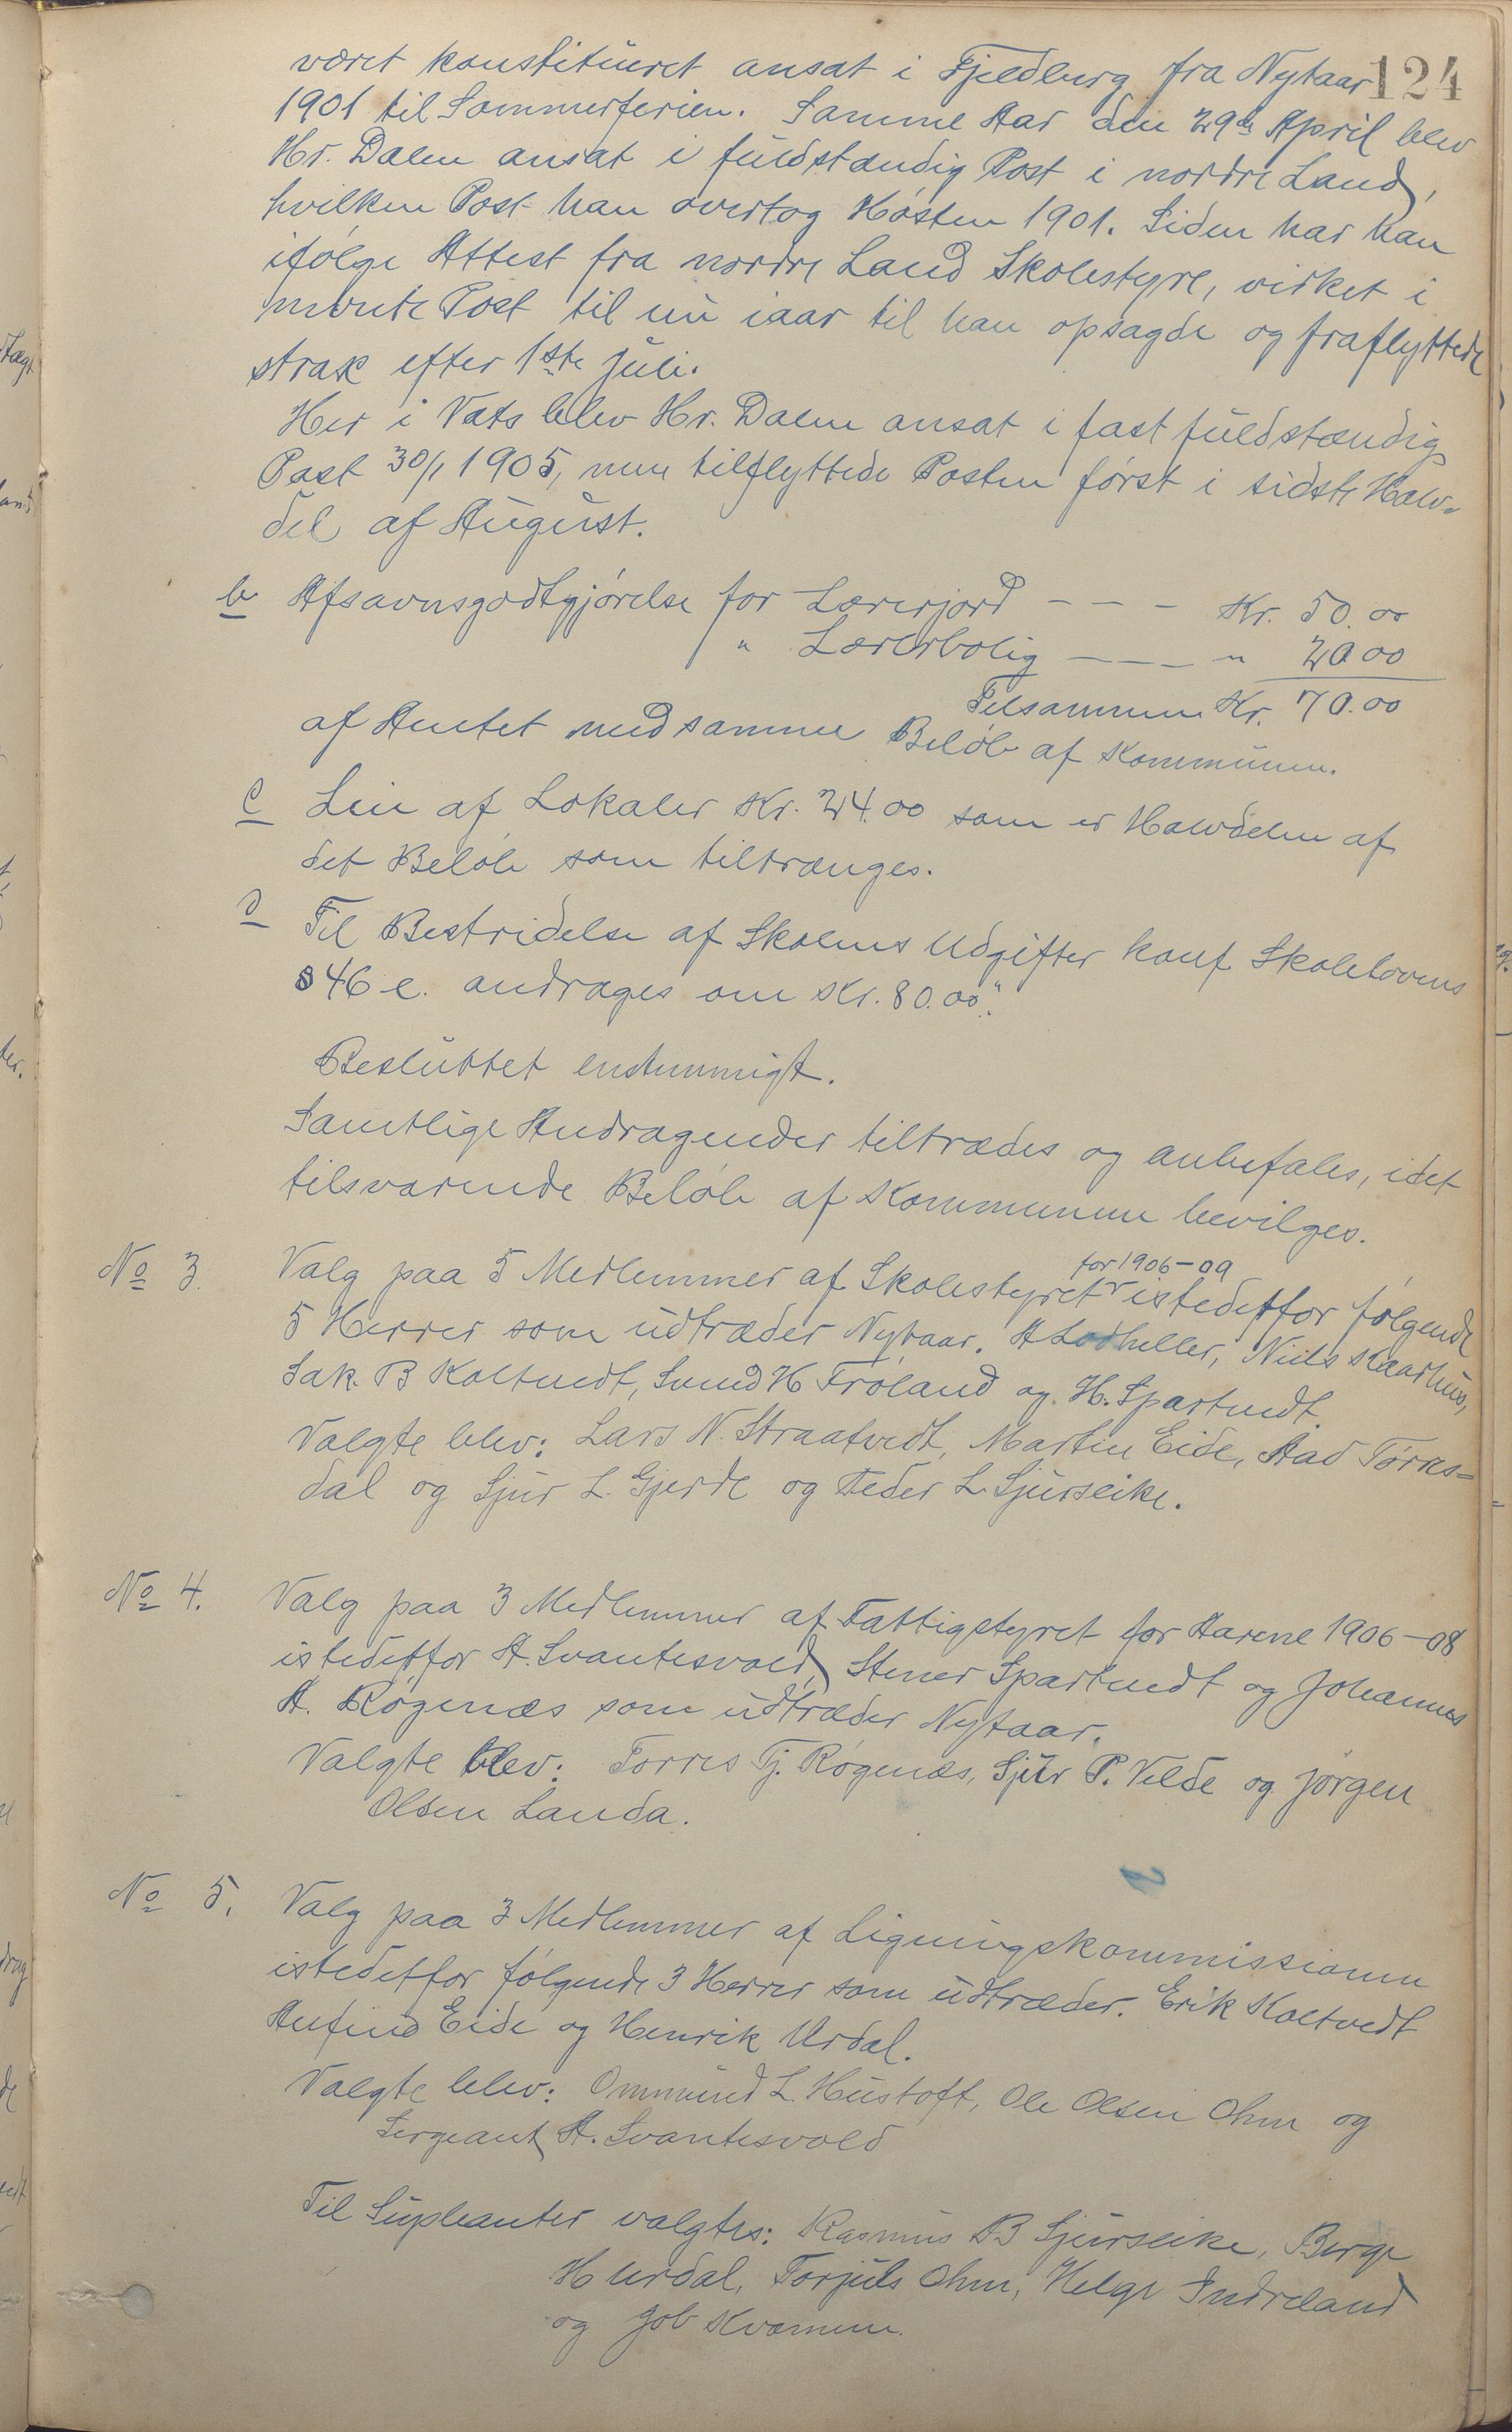 124
været konstitueret ansat i Fjeldberg fra Nytaar
1901 til Sommerferien. Samme Aar den 29de April blev
Hr. Dalen ansat i fuldstændig Post i nordre Land,
hvilken Post han overtog Høsten 1901. Siden har han
ifølge Attest fra nordre Land Skolestyre, virket i
nævnte Post til nu iaar til han opsagde og fraflyttede
strax efter 1ste Juli.
Her i Vats blev Hr. Dalen ansat i fast fuldstændig
Post 30/1 1905, men tilflyttede Posten først i sidste Halv-
del af August.
b Afsavnsgodtgjørelse for Lærerjord - - - Kr. 50.00
" Lærerbolig - - - " 20 00
Tilsammen Kr. 70.00
af Amtet mod samme Beløb af Kommunen.
c Leie af Lokaler Kr. 24.00 som er Halvdelen af
det Beløb som tiltrænges.
d Til Bestridelse af Skolens Udgifter konf Skolelovens
§ 46 e. andrages om Kr. 80.00."
Besluttet enstemmigt.
Samtlige Andragender tiltrædes og anbefales, idet
tilsvarende Beløb af Kommunen bevilges.
No 3. Valg paa 5 Medlemmer af Skolestyret for 1906-09 istedetfor følgende
5 Herrer som udtræder Nytaar. A Lodheller, Niels Kaarhus,
Sak. B Koltvedt, Svend H Frøland og H. Spartvedt.
Valgte blev: Lars N. Straatvedt, Martin Eide, Aad Tørres=
dal og Sjur L. Gjerde og Peder L. Sjurseike.
No 4. Valg paa 3 Medlemmer af Fattigstyret for Aarene 1906-08
istedetfor A. Svantesvold, Stener Spartvedt og Johannes
A. Røgenæs som udtræder Nytaar.
Valgte blev: Torres Tj. Røgenæs, Sjur P. Velde og Jørgen
Olsen Landa.
No 5. Valg paa 3 Medlemmer af Ligningskommissionen
istedetfor følgende 3 Herrer som udtræder. Erik Koltvedt
Anfind Eide og Henrik Urdal.
Valgte blev: Ommund L. Hustoft, Ole Olsen Ohm og
Sergeant A. Svantesvold
Til Supleanter valgtes: Rasmus B Sjurseike, Berge
H Urdal, Torjuls Ohm, Helge Indreland
og Job Kvamme.